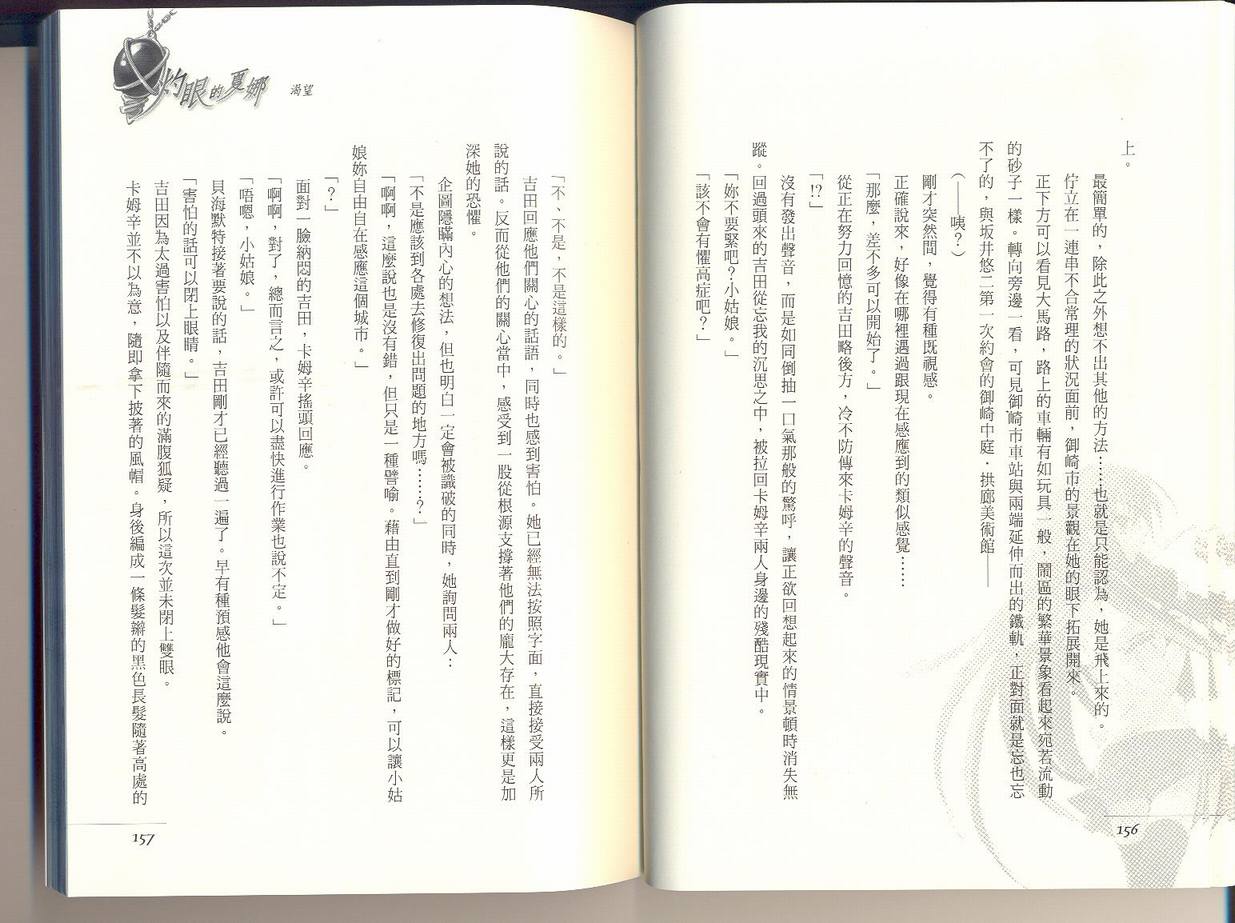 上。
最簡單的，除此之外想不出其他的方法……也就是只能認為，她是飛上來的。
佇立在一連串不合常理的狀況面前，御崎市的景觀在她的眼下拓展開來。
正下方可以看見大馬路，路上的車輛有如玩具一般，鬧區的繁華景象看起來宛若流動
的砂子一樣。轉向旁邊一看，可見御崎市車站與兩端延伸而出的鐵軌，正對面就是忘也忘
不了的，與坂井悠二第一次約會的御崎中庭．拱廊美術館——
（——咦？）
剛才突然間，覺得有種既視感。
正確說來，好像在哪裡遇過跟現在感應到的類似感覺……
「那麼，差不多可以開始了。」
從正在努力回憶的吉田略後方，冷不防傳來卡姆辛的聲音。
「!?」
沒有發出聲音，而是如同倒抽一口氣那般的驚呼，讓正欲回想起來的情景頓時消失無
蹤。回過頭來的吉田從忘我的沉思之中，被拉回卡姆辛兩人身邊的殘酷現實中。
「妳不要緊吧？小姑娘。」
「該不會有懼高症吧？」
156
灼眼的夏娜 渴望
「不、不是，不是這樣的。」
吉田回應他們關心的話語，同時也感到害怕。她已經無法按照字面，直接接受兩人所
說的話。反而從他們的關心當中，感受到一股從根源支撐著他們的龐大存在，這樣更是加
深她的恐懼。
企圖隱瞞內心的想法，但也明白一定會被識破的同時，她詢問兩人：
「不是應該到各處去修復出問題的地方嗎……？」
「啊啊，這麼說也是沒有錯，但只是一種譬喻。藉由直到剛才做好的標記，可以讓小姑
娘妳自由自在感應這個城市。」
「？」
面對一臉納悶的吉田，卡姆辛搖頭回應。
「啊啊，對了，總而言之，或許可以盡快進行作業也說不定。」
「唔嗯，小姑娘。」
貝海默特接著要說的話，吉田剛才已經聽過一遍了。早有種預感他會這麼說。
「害怕的話可以閉上眼睛。」
吉田因為太過害怕以及伴隨而來的滿腹狐疑，所以這次並未閉上雙眼。
卡姆辛並不以為意，隨即拿下披著的風帽。身後編成一條髮辮的黑色長髮隨著高處的
157